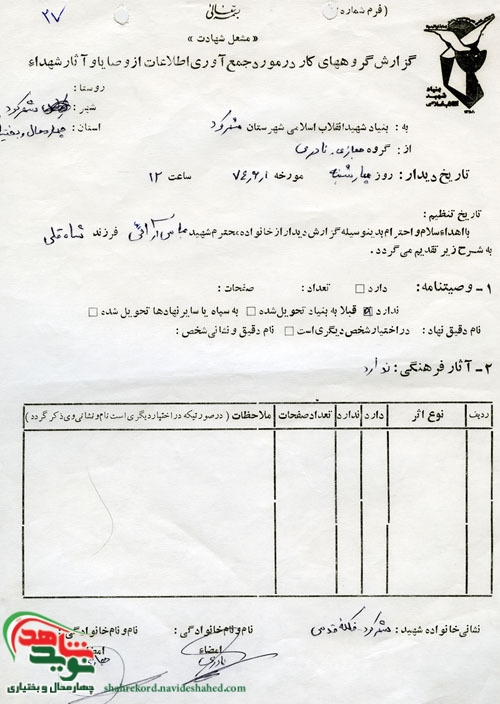 بسمه تعالی
( فرم شماره :
۲۷
« مشعل شهادت »
گزارش گروههای کار در مورد جمع آوری اطلاعات از وصایا و آثار شهداء
بنیاد شهید انقلاب اسلامی
روستا :
شهر : شهرکرد
استان : چهارمحال و بختیاری
به : بنیاد شهید انقلاب اسلامی شهرستان شهرکرد
از : گروه حجازی - نادری
تاریخ دیدار : روز چهارشنبه مورخه ۷۴٫۶٫۱ ساعت ۱۲
تاریخ تنظیم :
با اهداء سلام و احترام بدینوسیله گزارش دیدار از خانواده محترم شهید عباس آرائی فرزند شاه قلی
به شرح زیر تقدیم می گردد .
۱- وصیتنامه : دارد □ تعداد : صفحات :
ندارد ☒ قبلا به بنیاد تحویل شده □ به سپاه یا سایر نهادها تحویل شده □
نام دقیق نهاد : در اختیار شخص دیگری است □ نام دقیق و نشانی شخص :
۲- آثار فرهنگی : ندارد
ردیف نوع اثر دارد ندارد تعداد صفحات ملاحظات ( در صورتیکه در اختیار دیگری است نام و نشانی وی ذکر گردد )
نشانی خانواده شهید : شهرکرد فلکه قدس نام و نام خانوادگی : نام و نام خانوادگی :
امضاء امضاء
نادری
نوید شاهد
چهارمحال و بختیاری
shahrekord.navideshahed.com